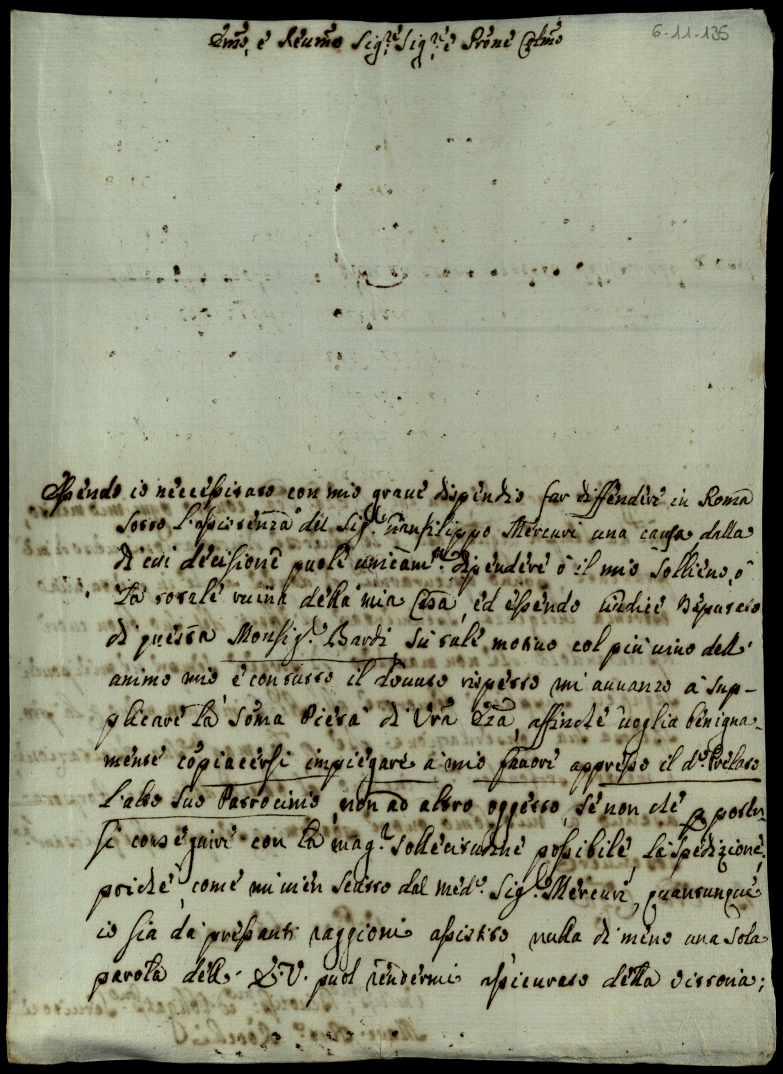 Illmo, e Reumo Sig.re Sig.re e Prone Colmo
6-11-135
Essendo io necessitato con mio graue dispendio far diffendere in Roma
sotto l'assistenza del Sig.r Gianfilippo Mercuri una causa, dalla
di cui decisione puole unicam.te dipendere ò il mio sollieuo, ò
la totale ruina della mia Casa, ed essendo Giudice Deputato
di questa Monsig.r Bardi, su tale motiuo col più uiuo dell'
animo mio e con tutto il douuto rispetto mi auuanzo à sup-
plicare la Soma Pietà di Vra Illma, affinchè uoglia benigna-
mente copiacersi impiegare à mio fauore appresso il d.o Prelato
l'alto suo Patrocinio, non ad altro oggetto, se non che p poter-
si conseguire con la mag.r sollecitudine possibile la spedizione,
poichè, come mi uien scritto dal med.o Sig.r Mercuri, quantunque
io sia da pressanti raggioni assistito nulla di meno una sola
parola dell' I.V. puol rendermi assicurato della vittoria;